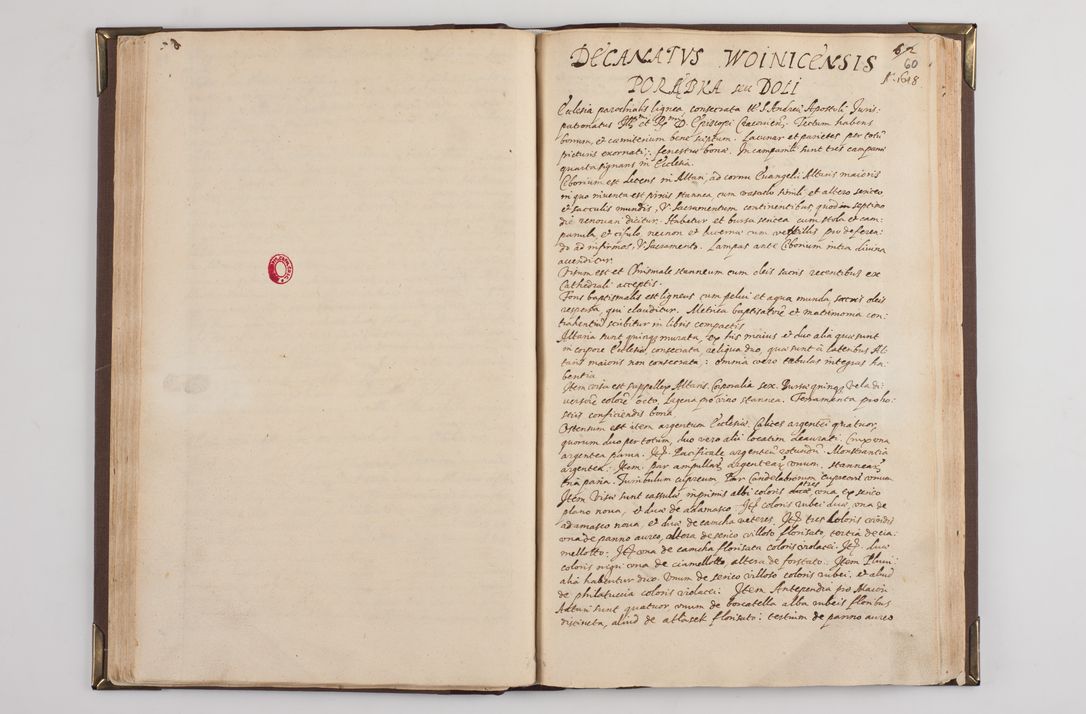 DECANATVS WOINICENSIS
60
PORĄBKA seu DOLI
1618
Ecclesia parochialis lignea consecrata tt. S. Andreæ Apostoli Juris
patronatus Illmi et Rmi D. Episcopi Cracovien. Tectum habens
bonum, et cœmiterium bene septum. Lacunar et parietes per totũ
picturis exornati: fenestræ bonæ. In campanili sunt tres campanæ
quarta signans in Ecclesia.
Ciborium est decens in Altari, ad cornu Euangelii Altaris maioris
in quo inuenta est pixis stannea cum vasculo simili et altero sericeo
et sacculis mundis, V. Sacramentum continentibus quod in septimo
die renouari dicitur. Habetur et bursa sericea cum stola et cam-
panula, et cifulo, necnon et lucerna cum vexillis pro deferen-
do ad infirmos V. Sacramento. Lampas ante Ciborium intra diuina
accenditur.
Visum est et Chrismale stanneum cum oleis sacris recentibus ex
Cathedrali acceptis.
Fons baptismalis est ligneus cum pelui et aqua munda, sacris oleis
respersa, qui clauditur. Metrica baptisatorũ et matrimonia con-
trahentiũ scribitur in libris compactis
Altaria sunt quinq murata, ex his maius et duo alia quæ sunt
in corpore Ecclesiæ, consecrata, reliqua duo, quæ sunt à lateribus Al-
taris maioris non consecrata: omnia vero tabulas integras ha-
bentia.
Item visa est supellex Altaris. Corporalia sex. Bursæ quinq vela di-
uersorũ colorũ octo. Lagena pro vino stannea. Ferramenta pro ho-
stiis conficiendis bona.
Ostensum est item argentum Ecclesiæ. Calices argentei quatuor,
quorum duo per totum, duo vero alii locatim deaurati. Crux una
argentea parua. Itẽ Pacificale argenteũ rotundũ. Monstrantia
argentea. Item par ampullarũ argentearũ unum, stannearũ
tria paria. Turribulum cupreum Par Candelabrorum cupreorũ unum
Item Visæ sunt casulæ inprimis albi coloris tres una ex serico
plano noua, et duæ de adamasco. Itẽ coloris rubei duæ, una de
adamasco noua, et duæ de camcha veteres. Itẽ tres coloris viridis
una de panno aureo, altera de serico villoso florisato, tertia de cia-
mellotto: Itẽ una de camcha florisata coloris violacei. Itẽ duæ
coloris nigri una de ciamellotto, altera de forstato. Item Pluui-
alia habentur duo. Unum de serico villoso coloris rubei. et aliud
de philatuccia coloris violacei. Item Antependia pro Maiori
Altari sunt quatuor unum de borcatella alba rubeis floribus
distincta, aliud de atłasek florisato: tertium de panno aureo